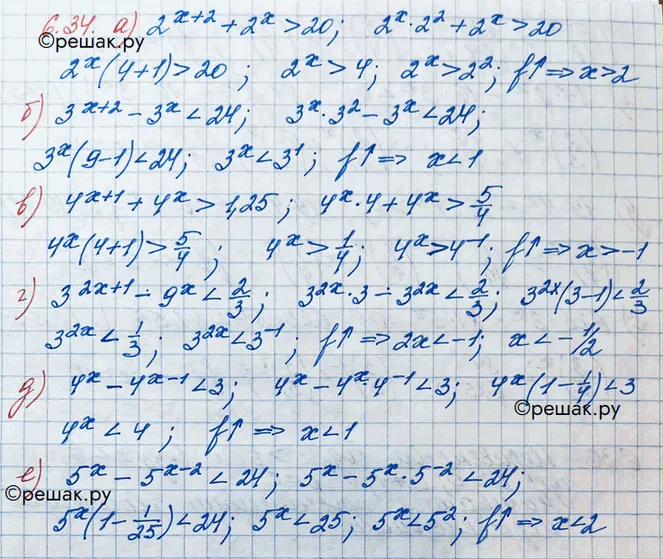 6.34. а) 2^{x+2} + 2^x > 20; 2^x · 2^2 + 2^x > 20
©решак.ру
2^x(4+1) > 20; 2^x > 4; 2^x > 2^2; f↑ ⇒ x > 2
б) 3^{x+2} − 3^x < 24; 3^x · 3^2 − 3^x < 24;
3^x(9−1) < 24; 3^x < 3^1; f↑ ⇒ x < 1
в) 4^{x+1} + 4^x > 1,25; 4^x · 4 + 4^x > 5/4
4^x(4+1) > 5/4; 4^x > 1/4; 4^x > 4^{-1}; f↑ ⇒ x > −1
г) 3^{2x+1} − 9^x < 2/3; 3^{2x} · 3 − 3^{2x} < 2/3; 3^{2x}(3−1) < 2/3
3^{2x} < 1/3; 3^{2x} < 3^{-1}; f↑ ⇒ 2x < −1; x < −1/2
д) 4^x − 4^{x−1} < 3; 4^x − 4^x · 4^{-1} < 3; 4^x(1 − 1/4) < 3
©решак.ру
4^x < 4; f↑ ⇒ x < 1
е) 5^x − 5^{x−2} < 24; 5^x − 5^x · 5^{-2} < 24;
©решак.ру
5^x(1 − 1/25) < 24; 5^x < 25; 5^x < 5^2; f↑ ⇒ x < 2